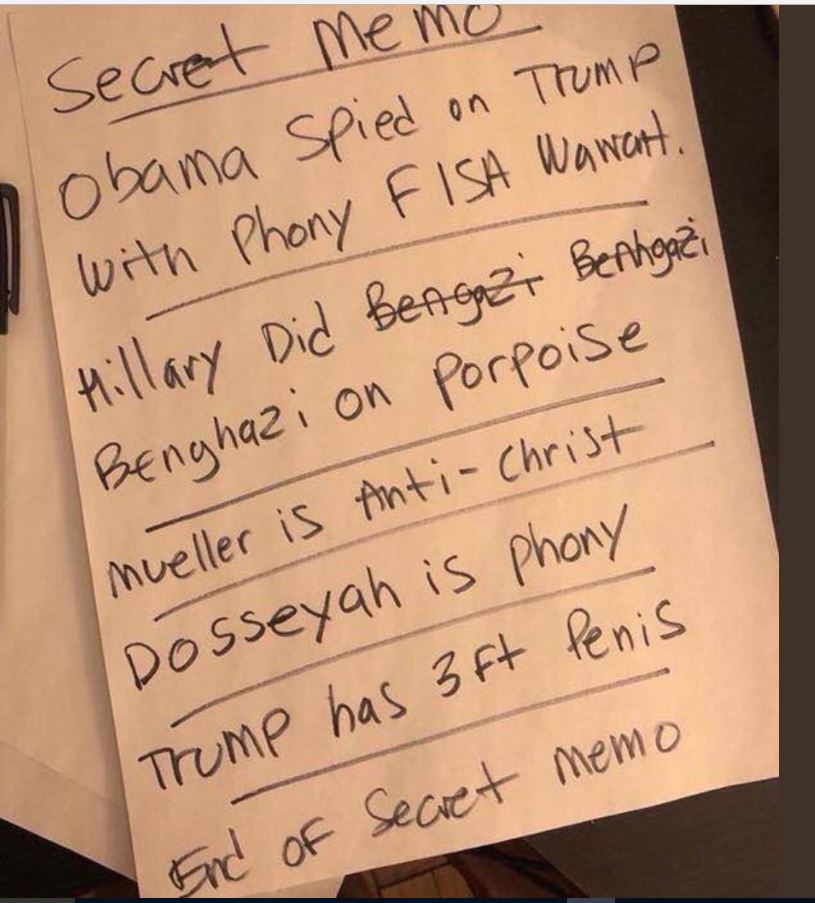 Secret Memo
Obama Spied on Trump
With Phony FISA Warrant.
Hillary Did Bengazi Benhgazi
Benghazi on Porpoise
Mueller is Anti-Christ
Dosseyah is phony
Trump has 3ft Penis
End of Secret memo